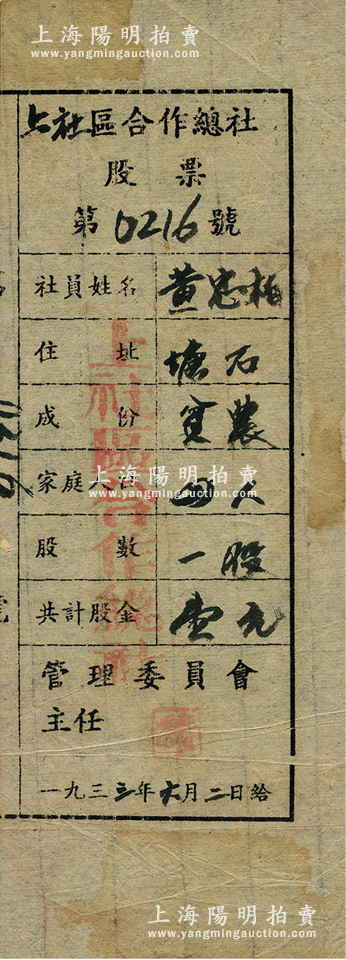 上海陽明拍賣
www.yangmingauction.com
上社區合作總社
股票
第0216號
社員姓名 黄忠柏
住址 塘石
成份 貧農
家庭人口 四人
股數 一股
共計股金 壹元
管理委員會
主任
一九三三年六月二日給
上社區合作總社
上海陽明拍賣
www.yangmingauction.com
上海陽明拍賣
www.yangmingauction.com